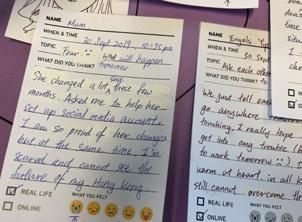 NAME Mum
WHEN & TIME 30 Sept 2019, 10:35pm
TOPIC Fear
WHAT DID YOU THINK? What will happen tomorrow
She changed a lot, these few
months. Asked me to help her
set up social media accounts.
I am so proud of her changes
but at the same time, I'm
scared and cannot see the
future of my Hong Kong
REAL LIFE
ONLINE
WHAT YOU FELT
NAME
WHEN & TIME 30 Sept
TOPIC Ask each other
WHAT DID YOU THINK?
We just tell each
go anywhere
touching. I really hope
get into any trouble
to work tomorrow
warm at heart, in all
still cannot overcome
REAL LIFE
ONLINE
WHAT YOU FELT